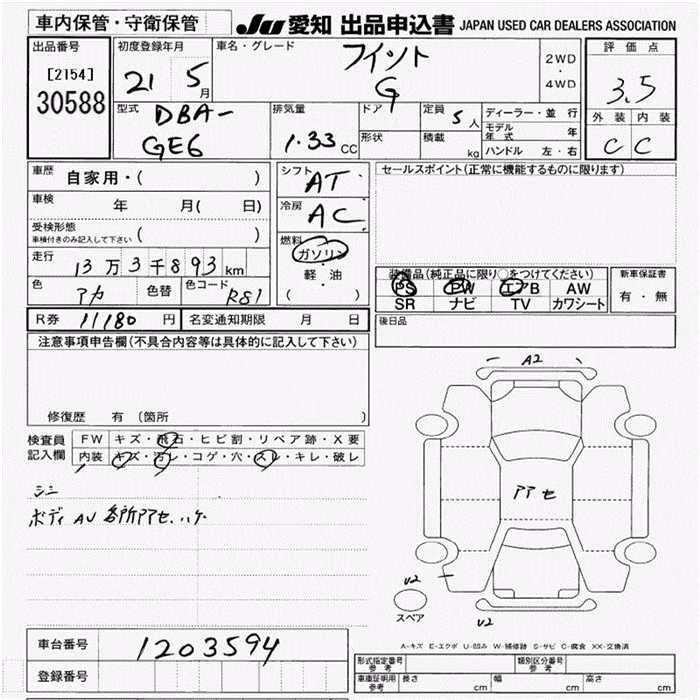 車内保管・守衛保管
JU 愛知 出品申込書 JAPAN USED CAR DEALERS ASSOCIATION
出品番号
[2154]
30588
初度登録年月
21 5月
車名・グレード
フイット
G
2WD
・
4WD
評価点
3.5
外装 内装
C C
型式
DBA-
GE6
排気量
1.33 CC
ドア
形状
定員 5人
積載 kg
ディーラー・並行
モデル年式 年
ハンドル 左・右
車歴 自家用・( )
車検 年 月( 日)
受検形態
車検付きのみ記入して下さい ( )
走行 13万3千893km
色 アカ 色替 色コード R81
シフト AT
冷房 AC
燃料
ガソリン
・
軽・油
( )
セールスポイント(正常に機能するものに限ります)
装備品(純正品に限り○をつけてください)
PS PW エアB AW
SR ナビ TV カワシート
新車保証書
有・無
R券 11180円 名変通知期限 月 日
後日品
注意事項申告欄(不具合内容等は具体的に記入して下さい)
修復歴 有(箇所
検査員記入欄
FW キズ・飛石・ヒビ割・リペア跡・X要
内装 キズ・汚レ・コゲ・穴・スレ・キレ・破レ
シミ
ボディ AU 各所アセ.ハゲ
A2
アアセ
U2
スペア
U2
A-キズ E-エクボ U-凹み W-補修跡 S-サビ C-腐食 XX-交換済
車台番号 1203594
登録番号
形式指定番号 参考
類別区分番号 参考
車庫証明用 参考 長さ cm 幅 cm 高さ cm